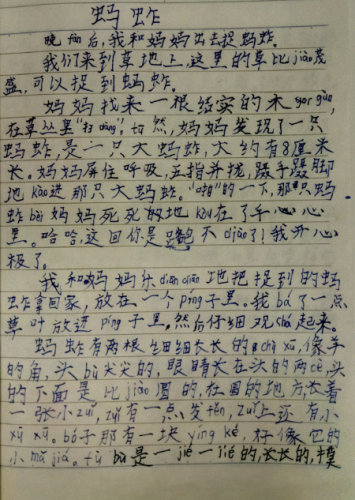 蚂蚱
晚fàn后,我和妈妈出去捉蚂蚱。
我们来到草地上,这里的草比jiào茂
盛,可以捉到蚂蚱。
妈妈找来一根结实的木gùn,
在草丛里"扫dàng"。忽然,妈妈发现了一只
蚂蚱,是一只大蚂蚱,大约有8厘米
长。妈妈屏住呼吸,五指并拢,蹑手蹑脚
地kào进那只大蚂蚱。"啪"的一下,那只蚂
蚱bèi妈妈死死地kòu在了手心心
里。哈哈,这回你是跑不diào了!我开心
极了。
我和妈妈乐diān diān地把捉到的蚂
蚱拿回家,放在一个píng子里。我bá了一点
草叶放进píng子里。然后仔细观chá起来。
蚂蚱有两根细细长长的chù xū,像羊
的角,头bù尖尖的,眼睛长在头的两cè,头
的下面是比jiào圆的,在圆的地方,长着
一张小zuǐ,zuǐ有一点发fěn,zuǐ上还有小
xū xū。bó子那有一块yìng ké,好像它的
小mǎ jiǎ。dù bù是一jié一jié的,长长的,摸